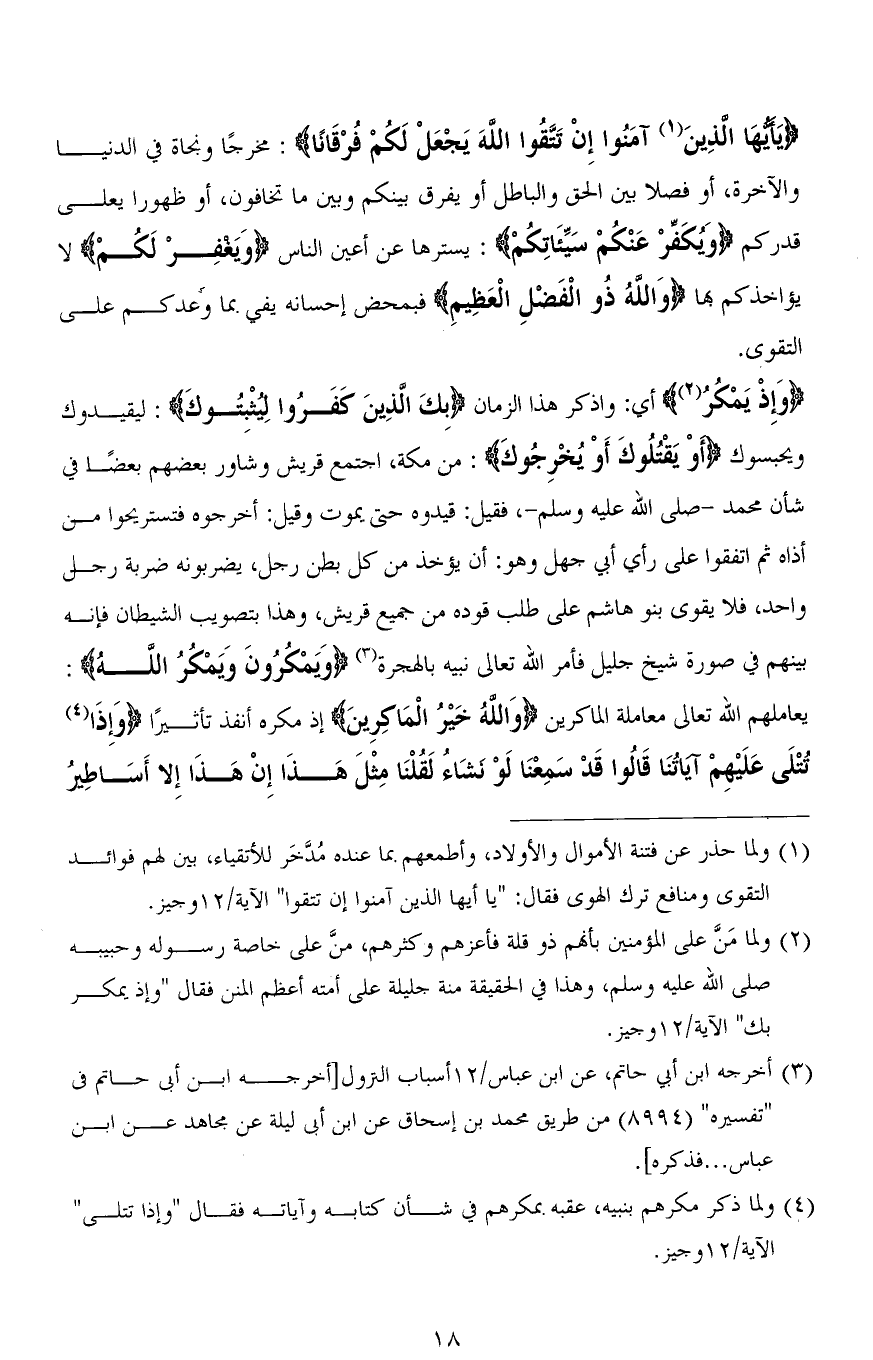 ﴿يَأَيُّهَا الَّذِينَ(١) آمَنُوا إِنْ تَتَّقُوا اللَّهَ يَجْعَلْ لَكُمْ فُرْقَانًا﴾ : مخرجًا ونجاة في الدنيـــا
والآخرة، أو فصلا بين الحق والباطل أو يفرق بينكم وبين ما تخافون، أو ظهورا يعلـــى
قدركم ﴿وَيُكَفِّرْ عَنْكُمْ سَيِّئَاتِكُمْ﴾ : يسترها عن أعين الناس ﴿وَيَغْفِـــرْ لَكُـــمْ﴾ لا
يؤاخذكم بها ﴿وَاللَّهُ ذُو الْفَضْلِ الْعَظِيمِ﴾ فبمحض إحسانه يفي بما وعدكـــم علـــى
التقوى.
﴿وَإِذْ يَمْكُرُ(٢)﴾ أي: واذكر هذا الزمان ﴿بِكَ الَّذِينَ كَفَـــرُوا لِيُثْبِتُـــوكَ﴾ : ليقيـــدوك
ويحبسوك ﴿أَوْ يَقْتُلُوكَ أَوْ يُخْرِجُوكَ﴾ : من مكة، اجتمع قريش وشاور بعضهم بعضًـــا في
شأن محمد -صلى الله عليه وسلم-، فقيل: قيدوه حتى يموت وقيل: أخرجوه فتستريحوا مـــن
أذاه ثم اتفقوا على رأي أبي جهل وهو: أن يؤخذ من كل بطن رجل، يضربونه ضربة رجـــل
واحد، فلا يقوى بنو هاشم على طلب قوده من جميع قريش، وهذا بتصويب الشيطان فإنـــه
بينهم في صورة شيخ جليل فأمر الله تعالى نبيه بالهجرة(٣) ﴿وَيَمْكُرُونَ وَيَمْكُرُ اللَّـــهُ﴾ :
يعاملهم الله تعالى معاملة الماكرين ﴿وَاللَّهُ خَيْرُ الْمَاكِرِينَ﴾ إذ مكره أنفذ تأثـــيرًا ﴿وَإِذَا(٤)
تُتْلَى عَلَيْهِمْ آيَاتُنَا قَالُوا قَدْ سَمِعْنَا لَوْ نَشَاءُ لَقُلْنَا مِثْلَ هَـــذَا إِنْ هَـــذَا إِلا أَسَـــاطِيرُ
(١) ولما حذر عن فتنة الأموال والأولاد، وأطمعهم بما عنده مُدَّخَر للأتقياء، بين لهم فوائـــد
التقوى ومنافع ترك الهوى فقال: "يا أيها الذين آمنوا إن تتقوا" الآية/١٢وجيز.
(٢) ولما مَنَّ على المؤمنين بأنهم ذو قلة فأعزهم وكثرهم، منَّ على خاصة رســـوله وحبيبـــه
صلى الله عليه وسلم، وهذا في الحقيقة منة جليلة على أمته أعظم المنن فقال "وإذ يمكـــر
بك" الآية/١٢وجيز.
(٣) أخرجه ابن أبي حاتم، عن ابن عباس/١٢أسباب النزول[أخرجـــه ابـــن أبى حـــاتم فى
"تفسيره" (٨٩٩٤) من طريق محمد بن إسحاق عن ابن أبى ليلة عن مجاهد عـــن ابـــن
عباس...فذكره].
(٤) ولما ذكر مكرهم بنبيه، عقبه بمكرهم في شـــأن كتابـــه وآياتـــه فقـــال "وإذا تتلـــى"
الآية/١٢وجيز.
١٨